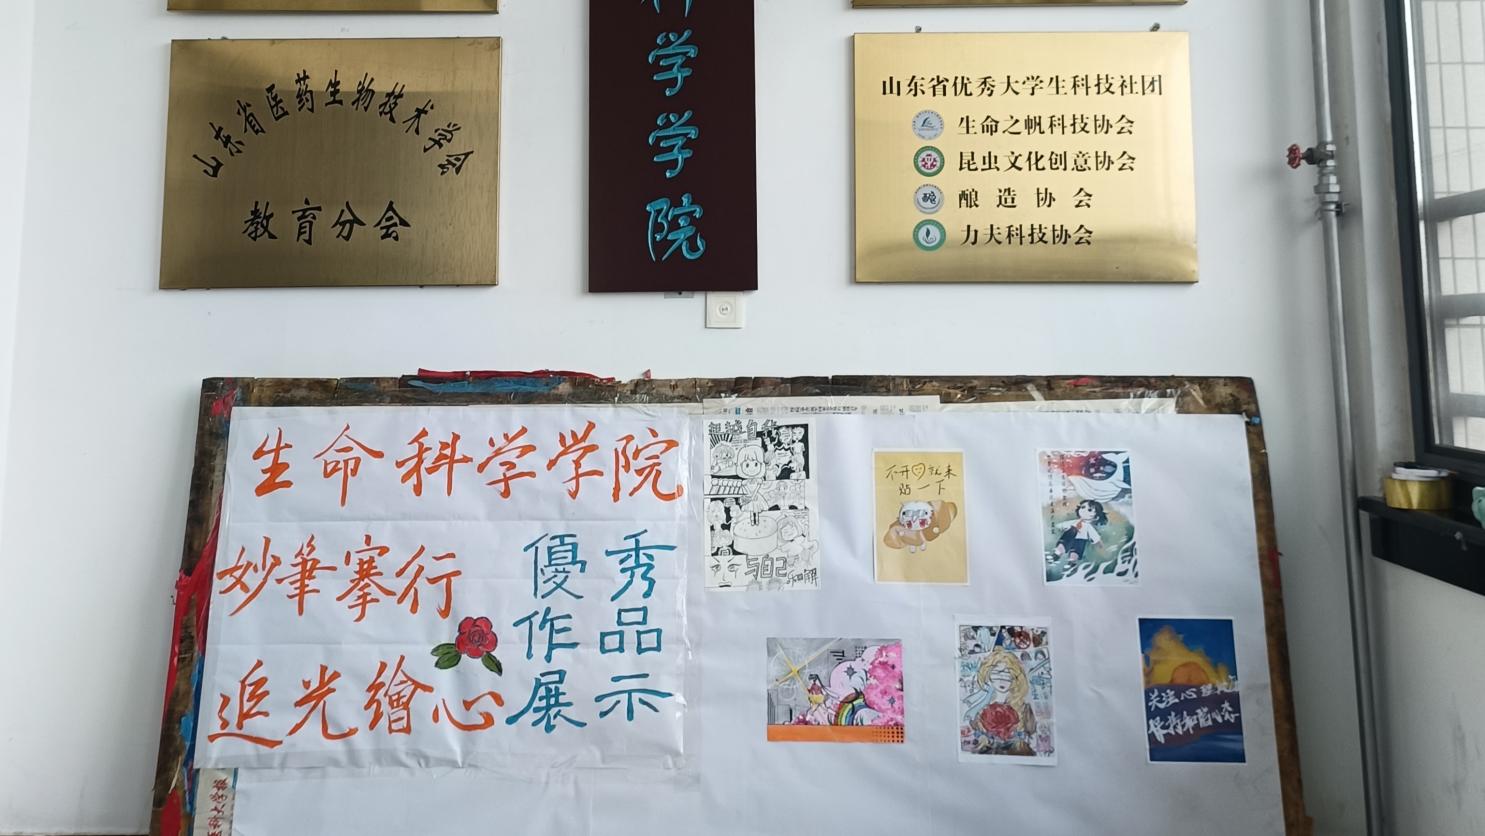 山东省医药生物技术学会
教育分会
学学院
山东省优秀大学生科技社团
生命之帆科技协会
昆虫文化创意协会
酿造协会
力夫科技协会
生命科学学院
妙筆搴行
追光繪心
優秀
作品
展示
超越自我
与自己
和解
不开心就来
贴一下
关注心理
保持和谐心态
科大学报